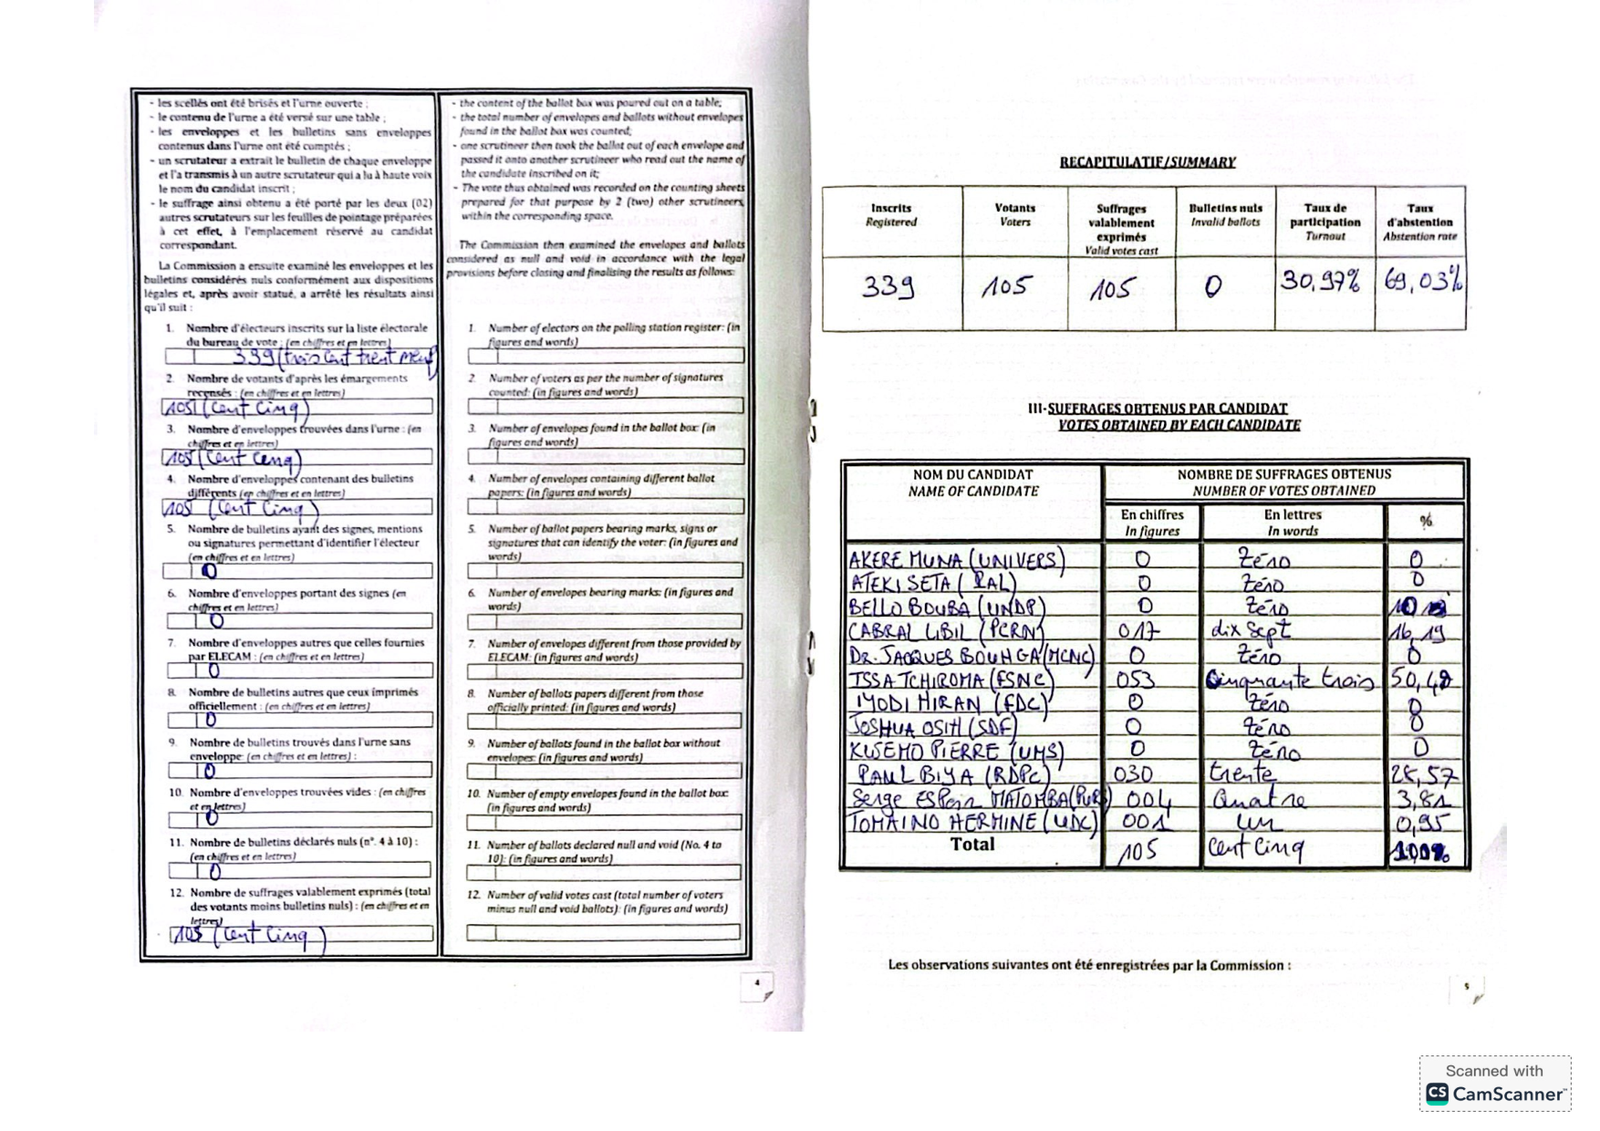 - les scellés ont été brisés et l'urne ouverte ;
- le contenu de l'urne a été versé sur une table ;
- les enveloppes et les bulletins sans enveloppes
contenus dans l'urne ont été comptés ;
- un scrutateur a extrait le bulletin de chaque enveloppe
et l'a transmis à un autre scrutateur qui a lu à haute voix
le nom du candidat inscrit ;
- le suffrage ainsi obtenu a été porté par les deux (02)
autres scrutateurs sur les feuilles de pointage préparées
à cet effet, à l'emplacement réservé au candidat
correspondant.
La Commission a ensuite examiné les enveloppes et les
bulletins considérés nuls conformément aux dispositions
légales et, après avoir statué, a arrêté les résultats ainsi
qu'il suit :
1. Nombre d'électeurs inscrits sur la liste électorale
du bureau de vote : (en chiffres et en lettres)
339 (trois cent trent neuf
2. Nombre de votants d'après les émargements
recensés : (en chiffres et en lettres)
105 (Cent Cinq)
3. Nombre d'enveloppes trouvées dans l'urne : (en
chiffres et en lettres)
105 (Cent Cenq)
4. Nombre d'enveloppes contenant des bulletins
différents (en chiffres et en lettres)
105 (Cent Cinq)
5. Nombre de bulletins ayant des signes, mentions
ou signatures permettant d'identifier l'électeur
(en chiffres et en lettres)
0
6. Nombre d'enveloppes portant des signes (en
chiffres et en lettres)
0
7. Nombre d'enveloppes autres que celles fournies
par ELECAM : (en chiffres et en lettres)
0
8. Nombre de bulletins autres que ceux imprimés
officiellement : (en chiffres et en lettres)
0
9. Nombre de bulletins trouvés dans l'urne sans
enveloppe: (en chiffres et en lettres) :
0
10. Nombre d'enveloppes trouvées vides : (en chiffres
et en lettres)
0
11. Nombre de bulletins déclarés nuls (n°. 4 à 10) :
(en chiffres et en lettres)
0
12. Nombre de suffrages valablement exprimés (total
des votants moins bulletins nuls) : (en chiffres et en
lettres)
105 (Cent Cinq)
- the content of the ballot box was poured out on a table;
- the total number of envelopes and ballots without envelopes
found in the ballot box was counted;
- one scrutineer then took the ballot out of each envelope and
passed it onto another scrutineer who read out the name of
the candidate inscribed on it;
- The vote thus obtained was recorded on the counting sheets
prepared for that purpose by 2 (two) other scrutineers
within the corresponding space.
The Commission then examined the envelopes and ballots
considered as null and void in accordance with the legal
provisions before closing and finalising the results as follows:
1. Number of electors on the polling station register: (in
figures and words)
2. Number of voters as per the number of signatures
counted: (in figures and words)
3. Number of envelopes found in the ballot box: (in
figures and words)
4. Number of envelopes containing different ballot
papers: (in figures and words)
5. Number of ballot papers bearing marks, signs or
signatures that can identify the voter: (in figures and
words)
6. Number of envelopes bearing marks: (in figures and
words)
7. Number of envelopes different from those provided by
ELECAM: (in figures and words)
8. Number of ballots papers different from those
officially printed: (in figures and words)
9. Number of ballots found in the ballot box without
envelopes: (in figures and words)
10. Number of empty envelopes found in the ballot box:
(in figures and words)
11. Number of ballots declared null and void (No. 4 to
10): (in figures and words)
12. Number of valid votes cast (total number of voters
minus null and void ballots): (in figures and words)
4
RECAPITULATIF/SUMMARY
Inscrits Registered Votants Voters Suffrages valablement exprimés Valid votes cast Bulletins nuls Invalid ballots Taux de participation Turnout Taux d'abstention Abstention rate
339 105 105 0 30,97% 69,03%
III-SUFFRAGES OBTENUS PAR CANDIDAT
VOTES OBTAINED BY EACH CANDIDATE
NOM DU CANDIDAT NOMBRE DE SUFFRAGES OBTENUS
NAME OF CANDIDATE NUMBER OF VOTES OBTAINED
En chiffres En lettres %
In figures In words
AKERE MUNA (UNIVERS) 0 Zéro 0
ATEKI SETA (PAL) 0 Zéro 0
BELLO BOUBA (UNDP) 0 Zéro
CABRAL LIBII (PCRN) 017 dix Sept 16,19
DR. JACQUES BOUHGA (MCNC) 0 Zéro 0
ISSA TCHIROMA (FSNC) 053 Cinquante trois 50,48
IYODI HIRAN (FDC) 0 Zéro 0
JOSHUA OSIH (SDF) 0 Zéro 0
KWEMO PIERRE (UMS) 0 Zéro 0
PAUL BIYA (RDPC) 030 trente 28,57
Serge ESPoir MATOMBA (PURS) 004 Quatre 3,81
TOMAINO HERMINE (UDC) 001 un 0,95
Total 105 Cent Cinq 100%
Les observations suivantes ont été enregistrées par la Commission :
5
Scanned with
CS CamScanner